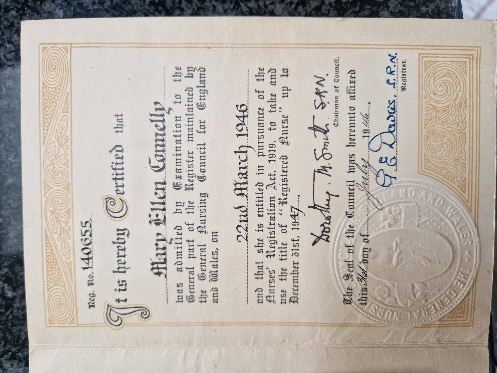 Reg. No. 140655.
It is hereby Certified that
Mary Ellen Connelly
was admitted by Examination to the
General part of the Register maintained by
the General Nursing Council for England
and Wales, on
22nd March 1946
and that she is entitled in pursuance of the
Nurses' Registration Act, 1919, to take and
use the title of "Registered Nurse" up to
December 31st, 1947.
Dorothy M. Smith S.R.N.
Chairman of Council.
The Seal of the Council was hereunto affixed
this day of July 19
G E Davies, S.R.N.
Registrar.
GENERAL NURSING